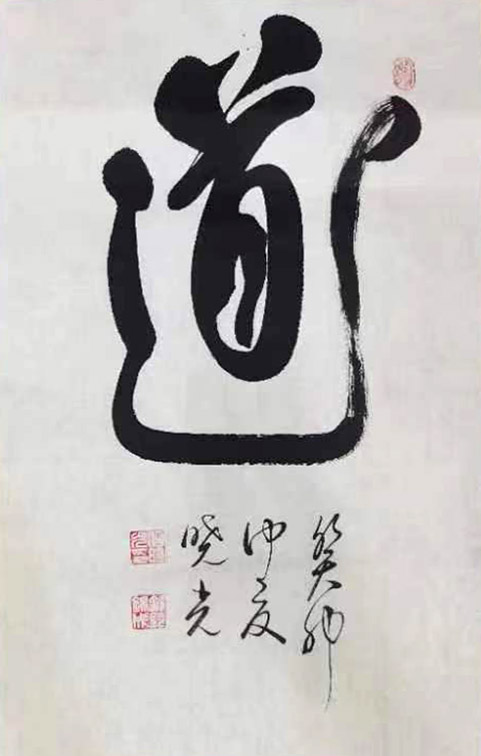 道
癸卯
仲夏
晓光